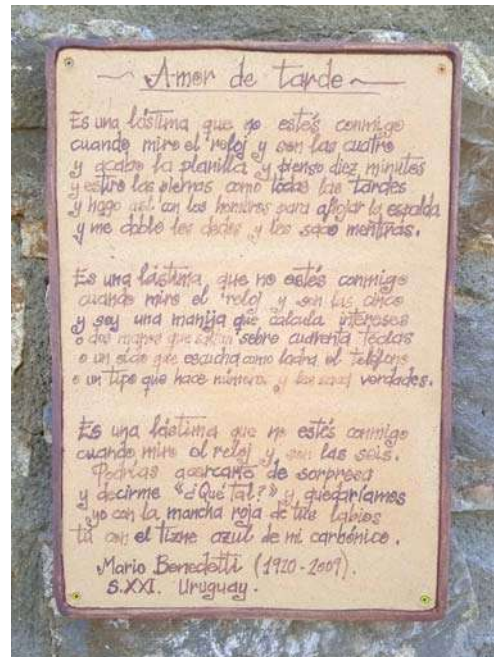 Amor de tarde
Es una lástima que no estés conmigo
cuando miro el reloj y son las cuatro
y acabo la planilla y pienso diez minutos
y estiro las piernas como todas las tardes
y hago así con los hombros para aflojar la espalda
y me doblo los dedos y les saco mentiras.
Es una lástima que no estés conmigo
cuando miro el reloj y son las cinco
y soy una manija que calcula intereses
o dos manos que saltan sobre cuarenta teclas
o un oído que escucha como ladra el teléfono
o un tipo que hace números y les saca verdades.
Es una lástima que no estés conmigo
cuando miro el reloj y son las seis.
Podrías acercarte de sorpresa
y decirme «¿Qué tal?» y quedaríamos
yo con la mancha roja de tus labios
tú con el tizne azul de mi carbónico.
Mario Benedetti (1920-2009).
S.XXI. Uruguay.